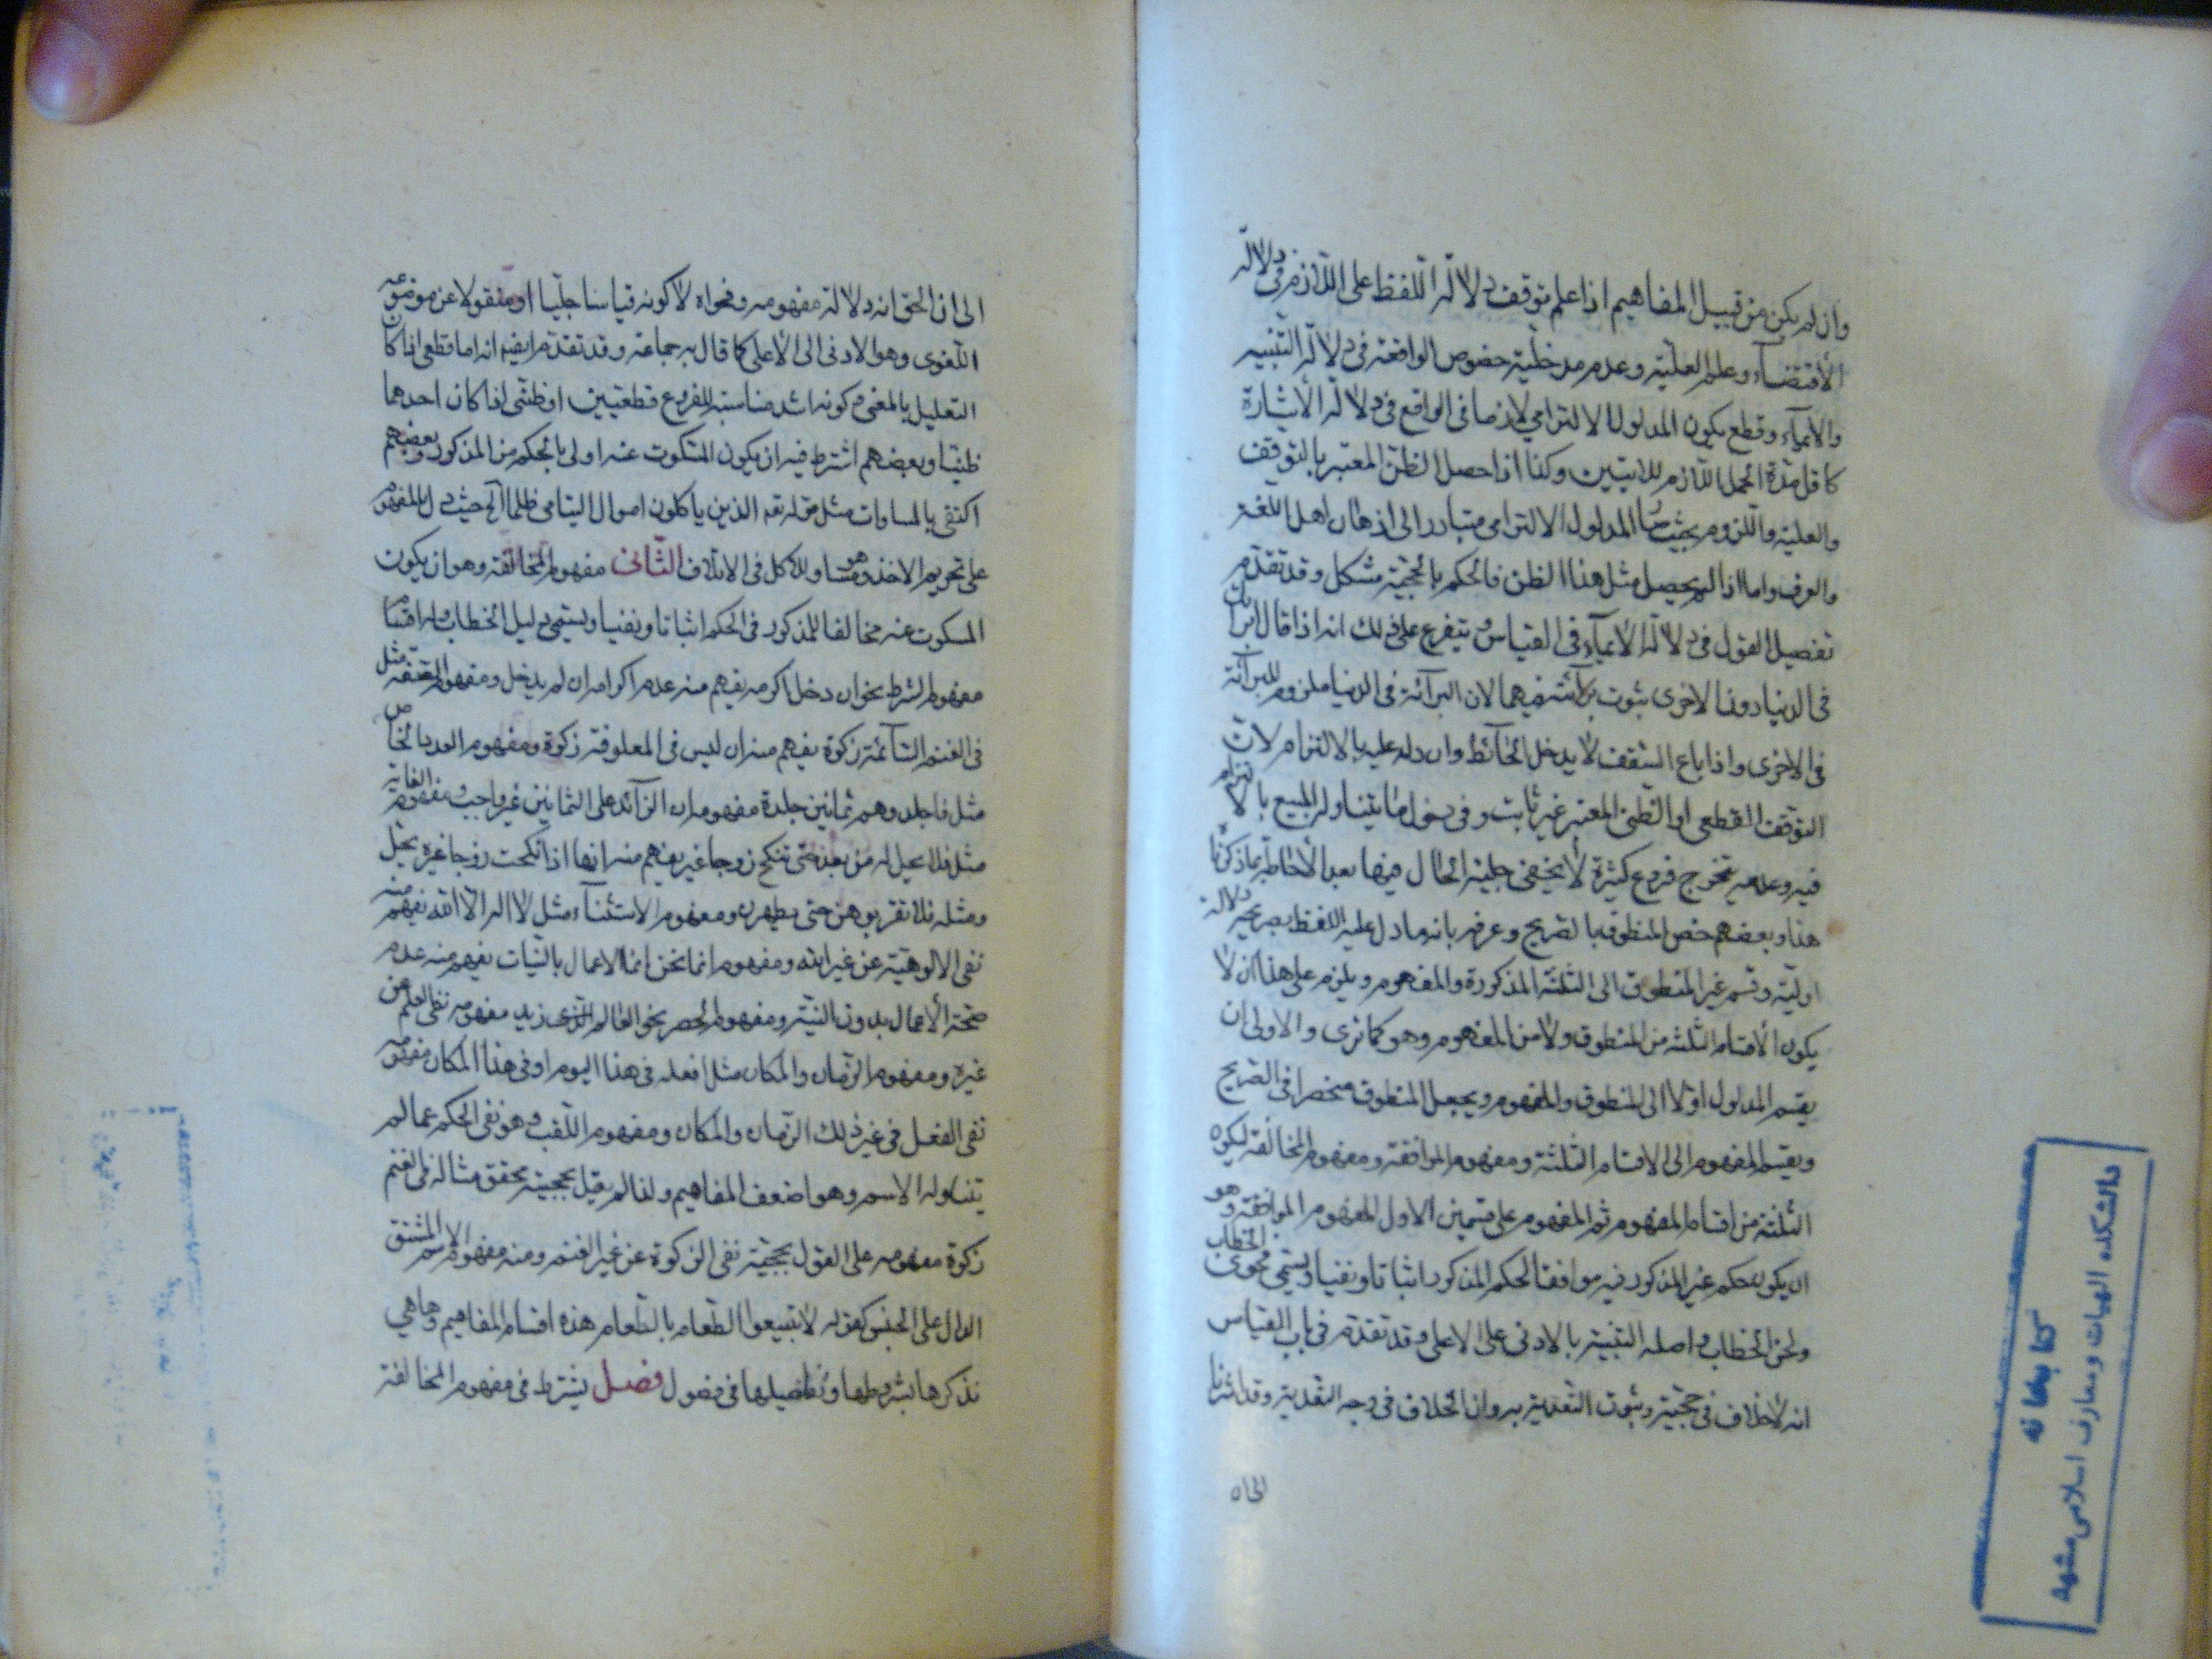 وان لم يكن من قبيل المفاهيم اذا علم توقف دلالة اللفظ على اللازم في دلالة
الاقتضاء وعلم العلية وعدم مدخلية خصوص الواقعة في دلالة التنبيه
والايماء وقطع بكون المدلول الالتزامي لازما في الواقع في دلالة الاشارة
كاقل مدة الحمل اللازم للايتين وكذا اذا حصل الظن المعتبر بالتوقف
والعلية واللزوم بحيث المدلول الالتزامي متبادر الى اذهان اهل اللغة
والعرف واما اذا لم يحصل مثل هذا الظن فالحكم بالحجية مشكل وقد تقدم
تفصيل القول في دلالة الايماء في القياس ويتفرع على ذلك انه اذا قال
في الدنيا دون الاخرى بثوت فيهما لان البرائة في الدنيا ملزوم للبرائة
في الاخرى واذا باع السقف لا يدخل الحائط وان دل عليه بالالتزام لان
التوقف القطعي او الظني المعتبر غير ثابت وفي ما يتناوله المبيع بالالتزام
فيه وعدمه تخرج فروع كثيرة لا يخفى جلية الحال فيها بعد الاحاطة بما ذكرنا
هذا وبعضهم خص المنطوق بالصريح وعرفه بانه ما دل عليه اللفظ بصريحه دلالة
اولية وقسم غير المنطوق الى الثلثة المذكورة والمفهوم ويلزم على هذا ان لا
يكون الاقسام الثلثة من المنطوق ولا من المفهوم وهو كما ترى والاولى ان
يقسم المدلول اولا الى المنطوق والمفهوم ويجعل المنطوق منحصرا في الصريح
ويقسم المفهوم الى الاقسام الثلثة ومفهوم الموافقة ومفهوم المخالفة ليكون
الثلثة من اقسام المفهوم ثم المفهوم على قسمين الاول المفهوم الموافقة وهو
ان يكون حكم غير المذكور فيه موافقا لحكم المذكور اثباتا ونفيا ويسمى فحوى الخطاب
ولحن الخطاب واصله التنبيه بالادنى على الاعلى وقد تقدم في باب القياس
انه لا خلاف في حجيته وثبوت التعدية به وان الخلاف في وجه التعدية وقد اشرنا
الى ان
دانشكده الهيات ومعارف اسلامى مشهد
كتابخانه
الى ان الحق انه دلالة مفهومه وفحواه لا كونه قياسا جليا او منقولا عن موضوعه
اللغوى وهو الادنى الى الاعلى كما قال به جماعة وقد تقدم ايضا انه اما قطعي اذا كان
التعليل بالمعنى وكونه اشد مناسبة للفروع قطعيين او ظني اذا كان احدهما
ظنيا وبعضهم اشترط فيه ان يكون المسكوت عنه اولى بالحكم من المذكور وبعضهم
اكتفى بالمساوات مثل قوله تعه الذين ياكلون اموال اليتامى ظلما الخ حيث دل بالمفهوم
على تحريم الاخذ وهو مساو للاكل في الاتلاف الثاني مفهوم المخالفة وهو ان يكون
المسكوت عنه مخالفا للمذكور في الحكم اثباتا ونفيا ويسمى دليل الخطاب وله اقسام
مفهوم الشرط نحو ان دخل اكرمه يفهم منه عدم اكرامه ان لم يدخل ومفهوم الصفة مثل
في الغنم السائمة زكوة يفهم منه ان ليس في المعلوفة زكوة ومفهوم العدد الخاص
مثل فاجلدوهم ثمانين جلدة مفهومه ان الزائد على الثمانين غير واجب ومفهوم الغاية
مثل فلا تحل له من بعد حتى تنكح زوجا غيره يفهم منه انها اذا نكحت زوجا غيره تحل
ومثله فلا تقربوهن حتى يطهرن ومفهوم الاستثناء مثل لا اله الا الله يفهم منه
نفى الالوهية عن غير الله ومفهوم انما نحن انما الاعمال بالنيات يفهم منه عدم
صحة الاعمال بدون النية ومفهوم الحصر نحو العالم زيد مفهومه نفى العلم عن
غيره ومفهوم الزمان والمكان مثل افعله في هذا اليوم او في هذا المكان مفهومه
نفى الفعل في غير ذلك الزمان والمكان ومفهوم اللقب وهو نفى الحكم عما لم
يتناوله الاسم وهو اضعف المفاهيم ولذا لم يقل بحجيته محقق مثاله في الغنم
زكوة مفهومه على القول بحجيته نفى الزكوة عن غير الغنم ومنه مفهوم الاسم المشتق
الدال على الجنس كقوله لا تبيعوا الطعام بالطعام هذه اقسام المفاهيم وها هي
نذكرها بشروطها وتفاصيلها في فصول فصل يشترط في مفهوم المخالفة